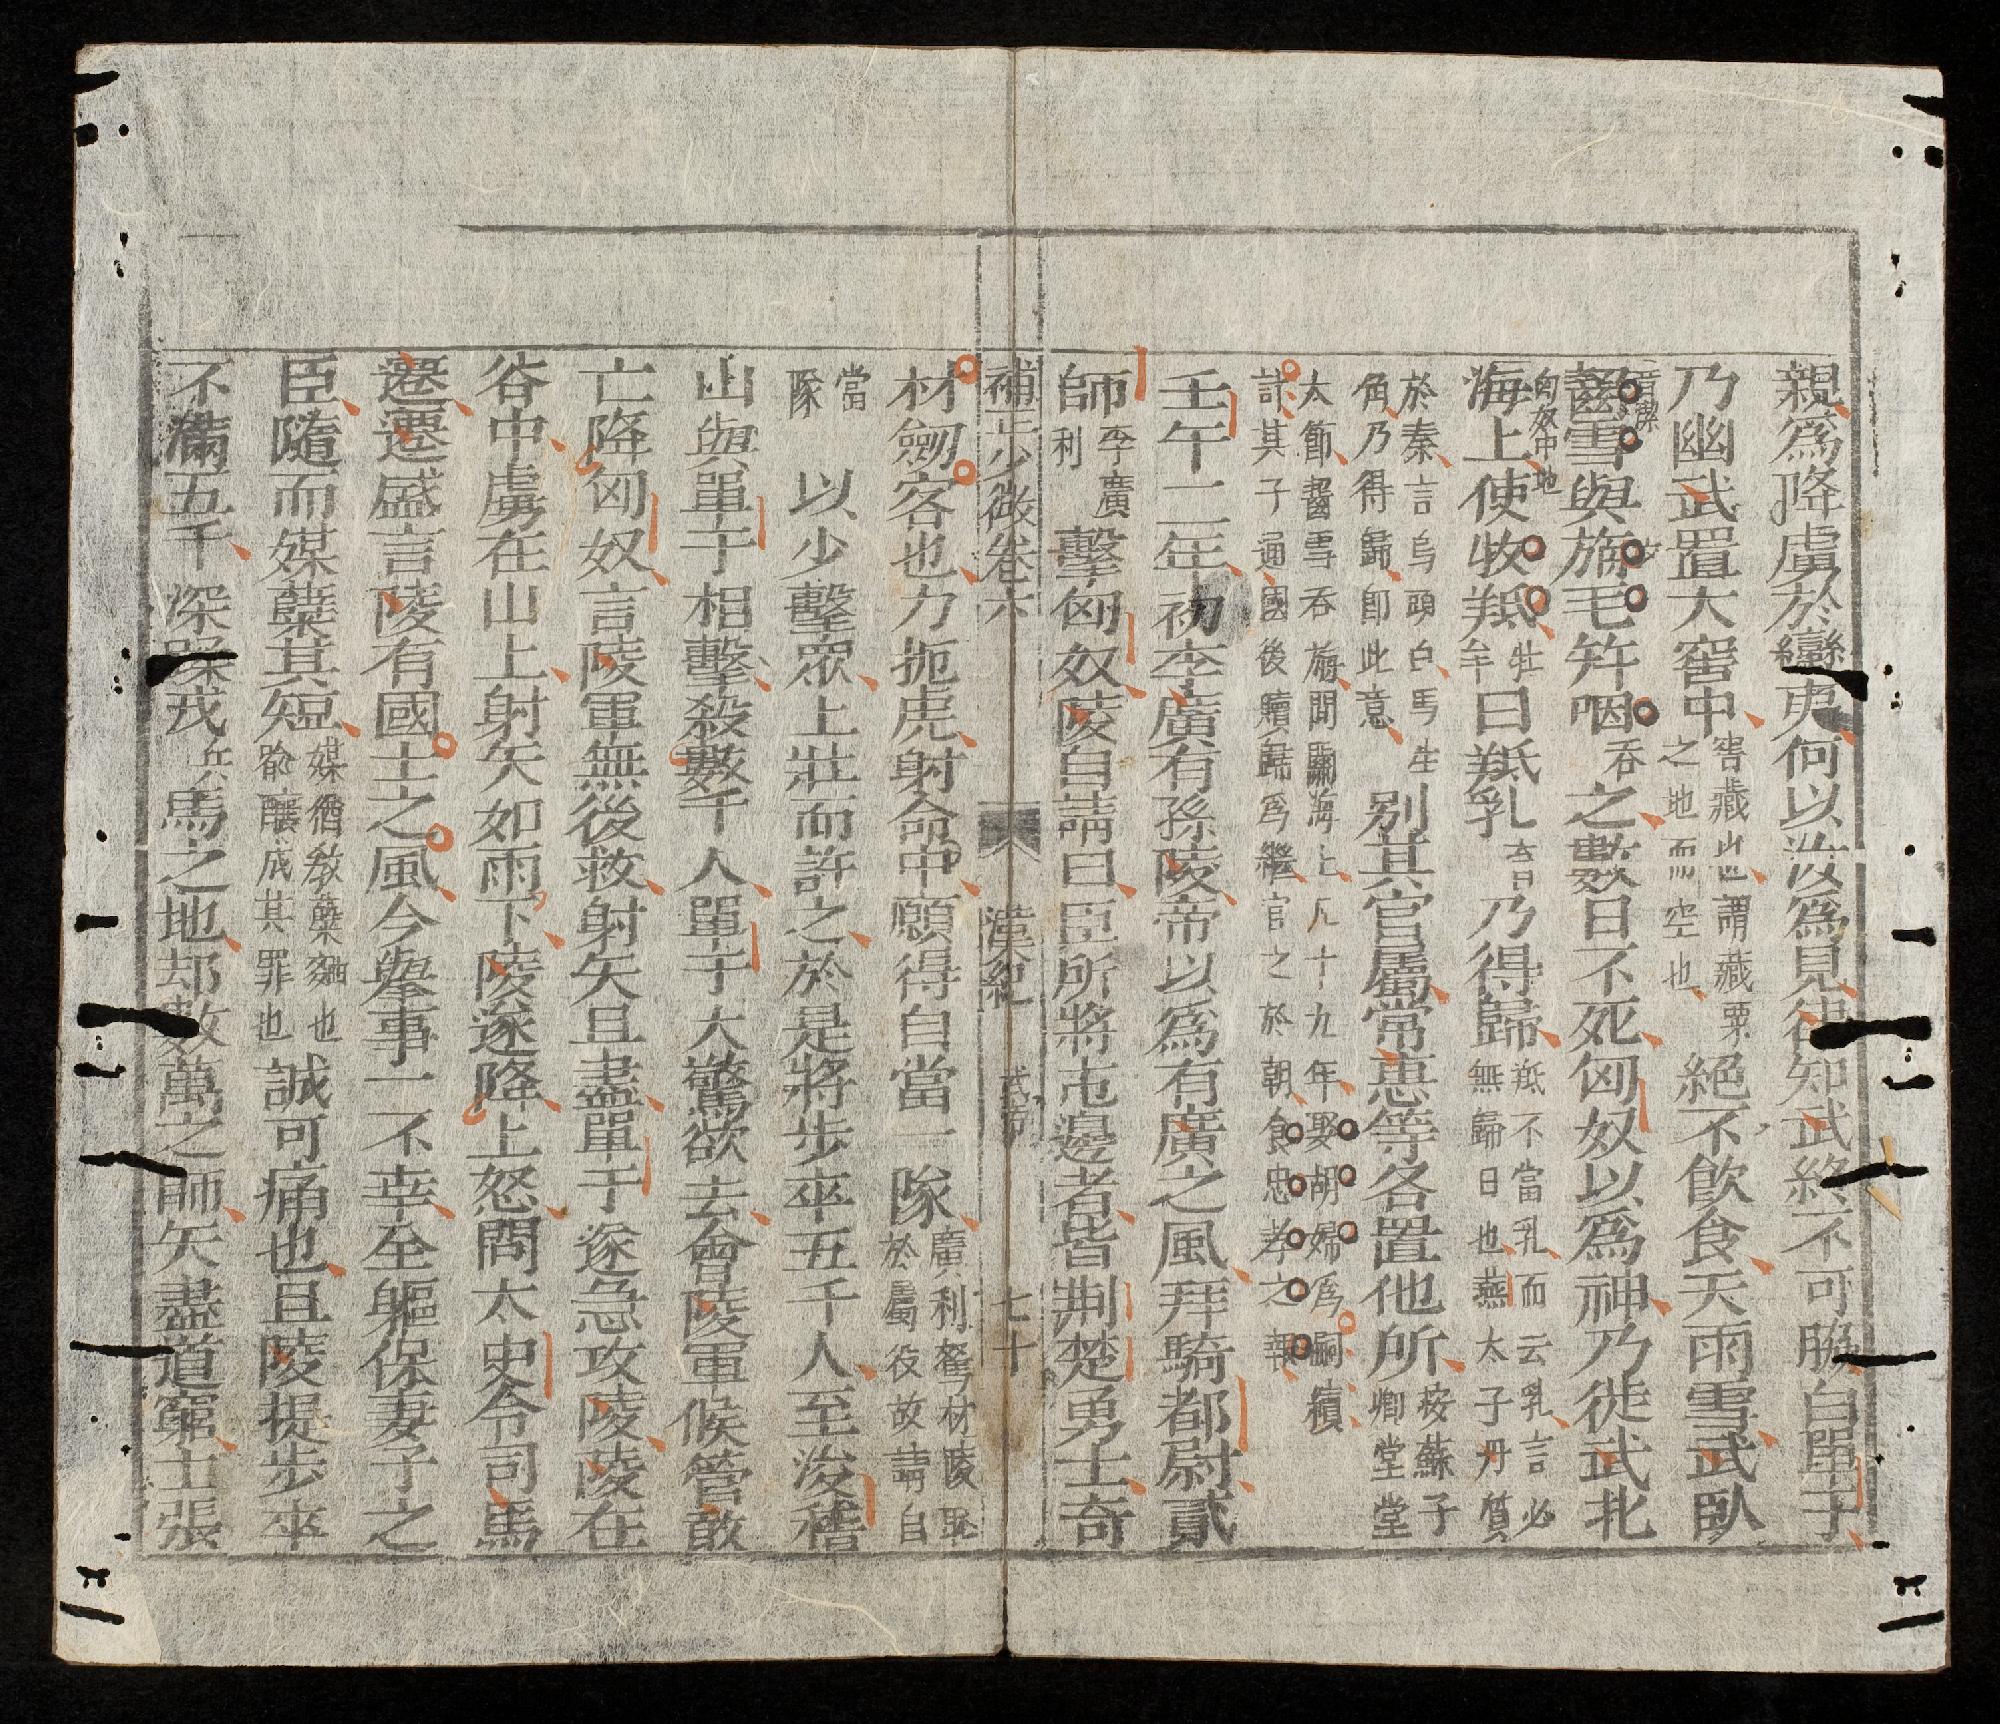 親爲降虜於蠻夷何以汝爲見律知武終不可脅白單于
乃幽武置大窖中窖藏也謂藏粟之地而空也絕不飮食天雨雪武臥
齧雪與旃毛幷咽吞之數日不死匈奴以爲神乃徙武北
海上匈奴中地使牧羝牡羊曰羝乳育乃得歸羝不當乳而云乳言必無歸日也燕太子丹質
於秦言烏頭白馬生角乃得歸卽此意別其官屬常惠等各置他所按蘇子卿堂堂
大節齧雪吞旃閱關海上凡十九年娶胡婦爲嗣續計其子通國後贖歸爲繼官之於朝食忠孝之報
壬午二年初李廣有孫陵帝以爲有廣之風拜騎都尉貳
師李廣利擊匈奴陵自請曰臣所將屯邊者皆荆楚勇士奇
補正少微卷六 漢紀 武帝 七十
材劒客也力扼虎射命中願得自當一隊廣利駑材陵恥於屬役故請自
當隊以少擊眾上壯而許之於是將步卒五千人至浚稽
山與單于相擊殺數千人單于大驚欲去會陵軍候管敢
亡降匈奴言陵軍無後救射矢且盡單于遂急攻陵陵在
谷中虜在山上射矢如雨下陵遂降上怒問太史令司馬
遷遷盛言陵有國士之風今擧事一不幸全軀保妻子之
臣隨而媒糱其短媒猶敎糱麴也喩釀成其罪也誠可痛也且陵提步卒
不滿五千深蹂戎兵馬之地却數萬之師矢盡道窮士張